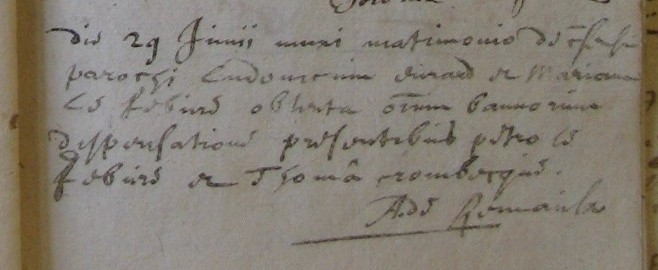 die 29 Junii iunxi matrimonio de cõsensu
parochi Ludovicum evrard et Mariam
Le febure obtenta oĩum bannorum
dispensatione presentibus petro le
febure et Thomâ crombecque.